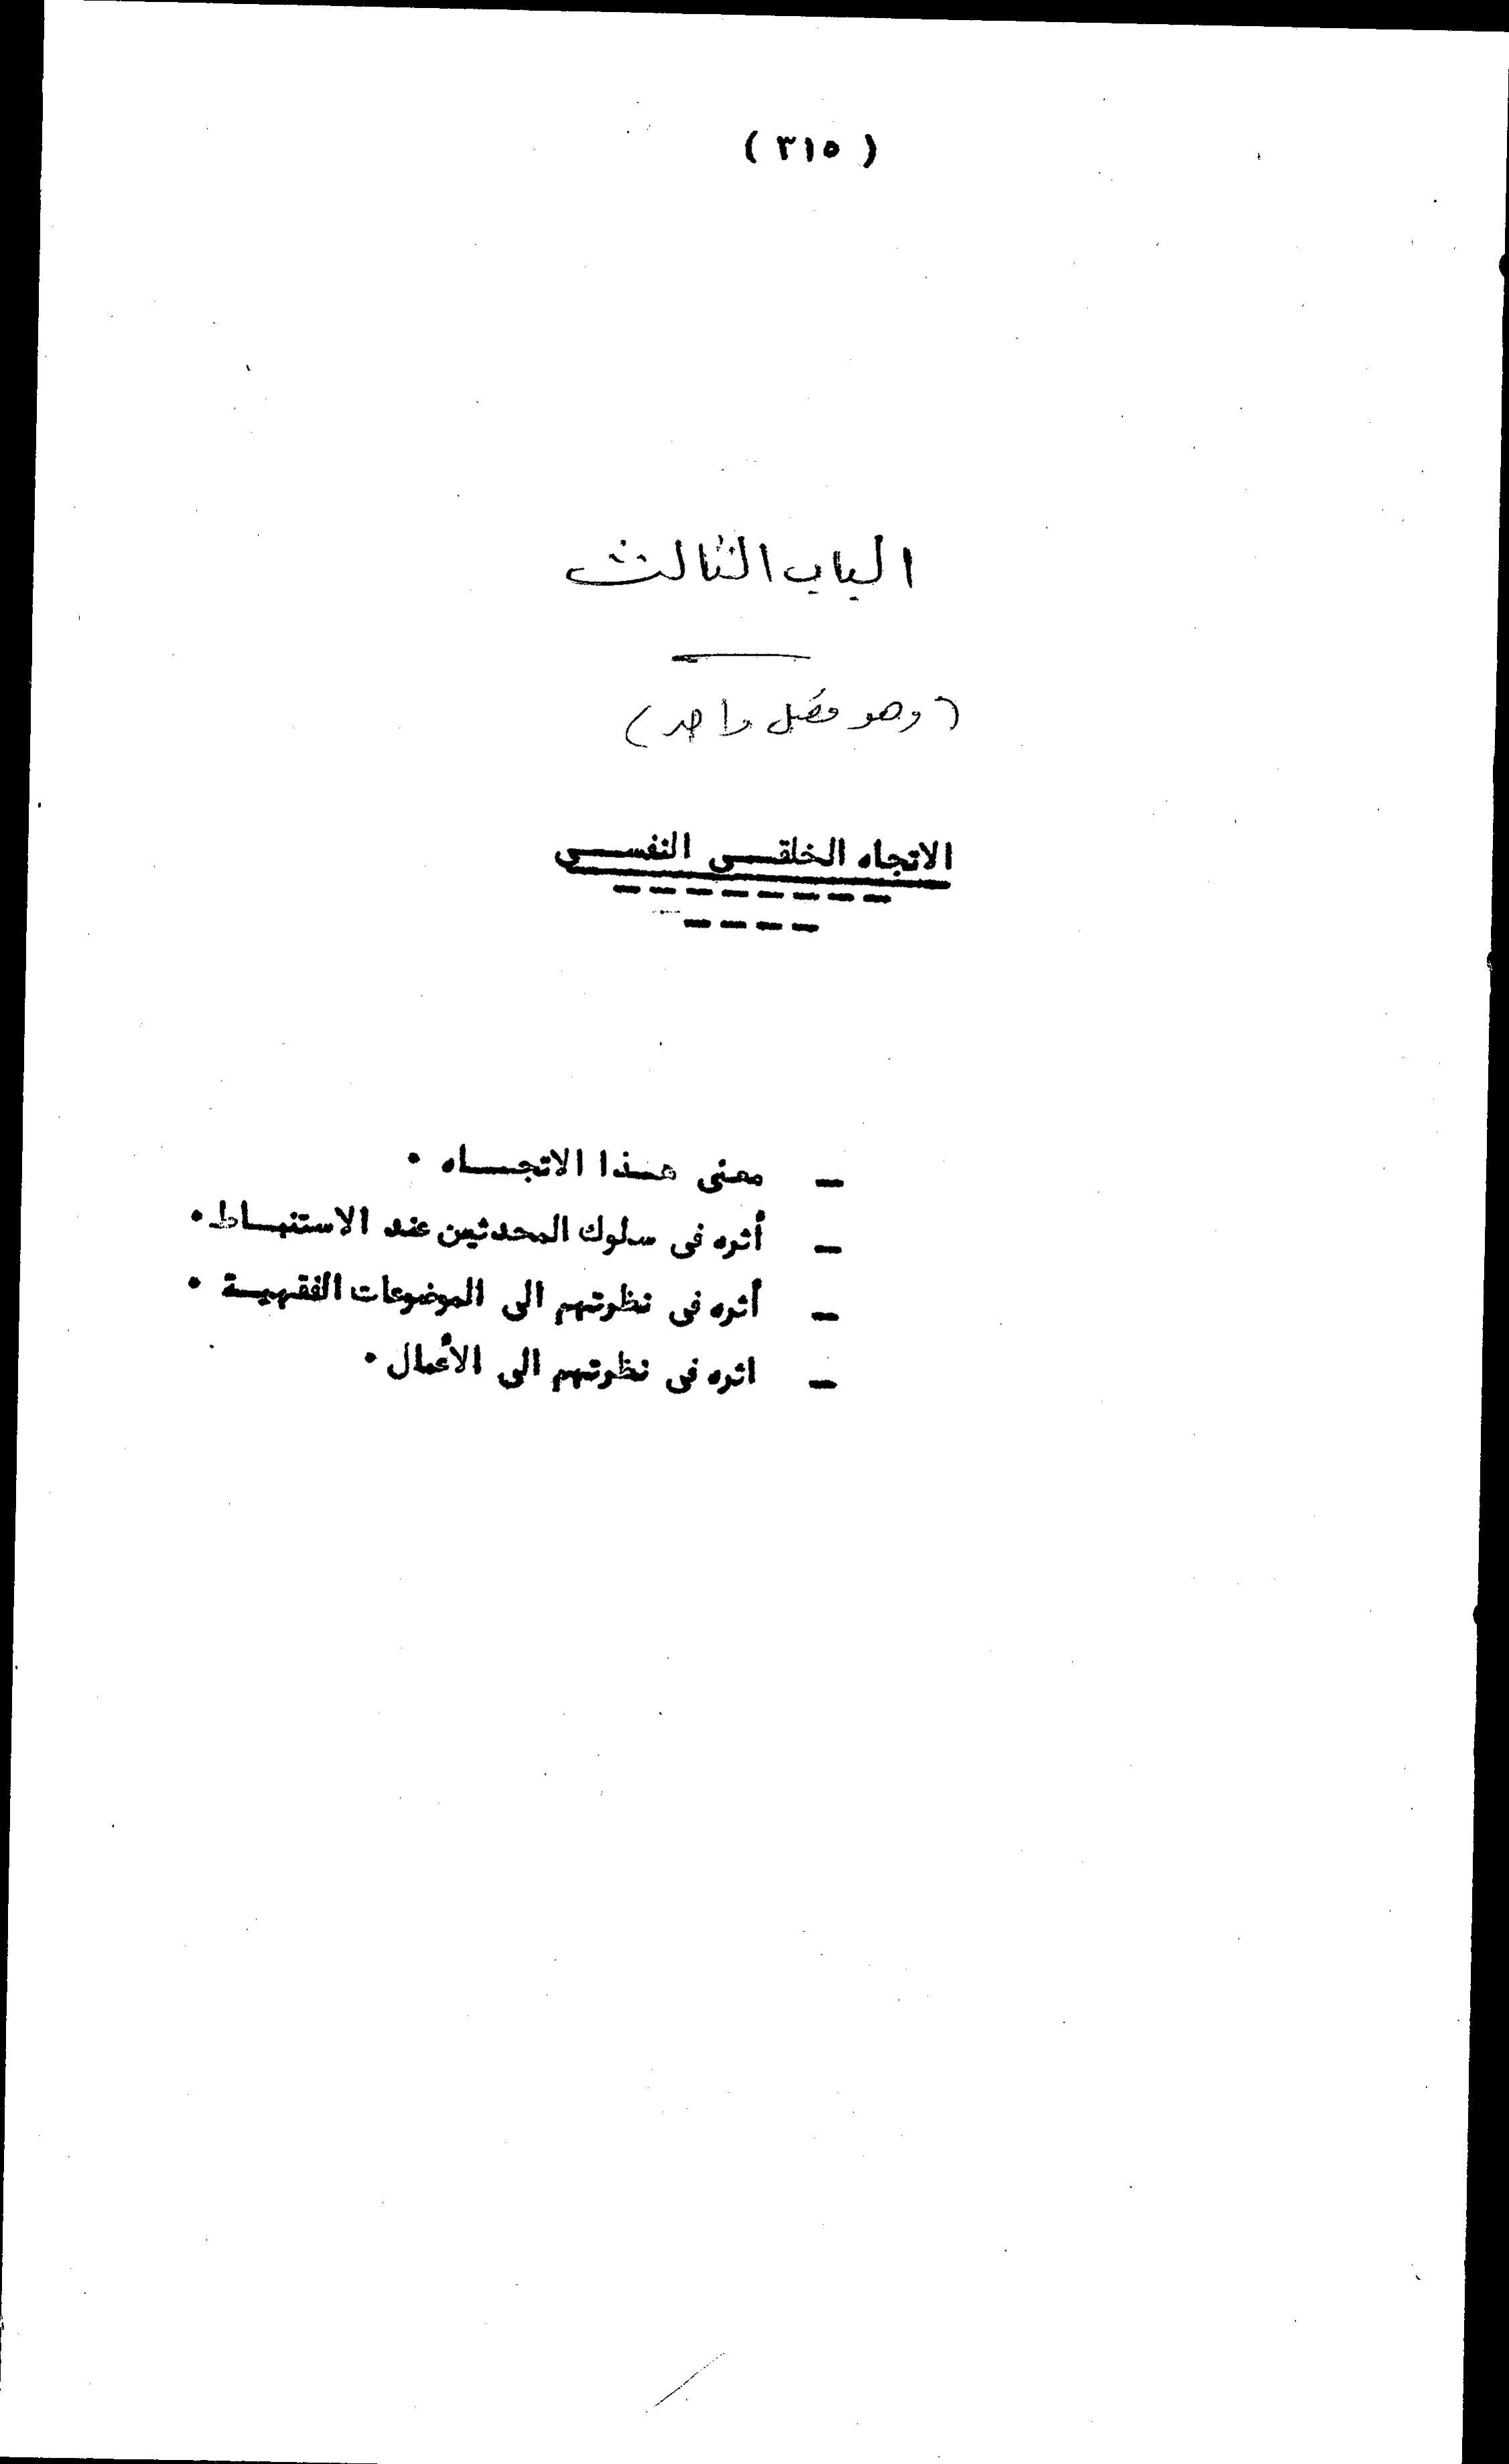 ( ٣١٥ )
الباب الثالث
(وهو فصل واحد)
الاتجاه الخلقى النفسى
ـ معنى هذا الاتجاه ٠
ـ أثره فى سلوك المحدثين عند الاستنباط ٠
ـ أثره فى نظرتهم الى الموضوعات الفقهية ٠
ـ اثره فى نظرتهم الى الأعمال ٠